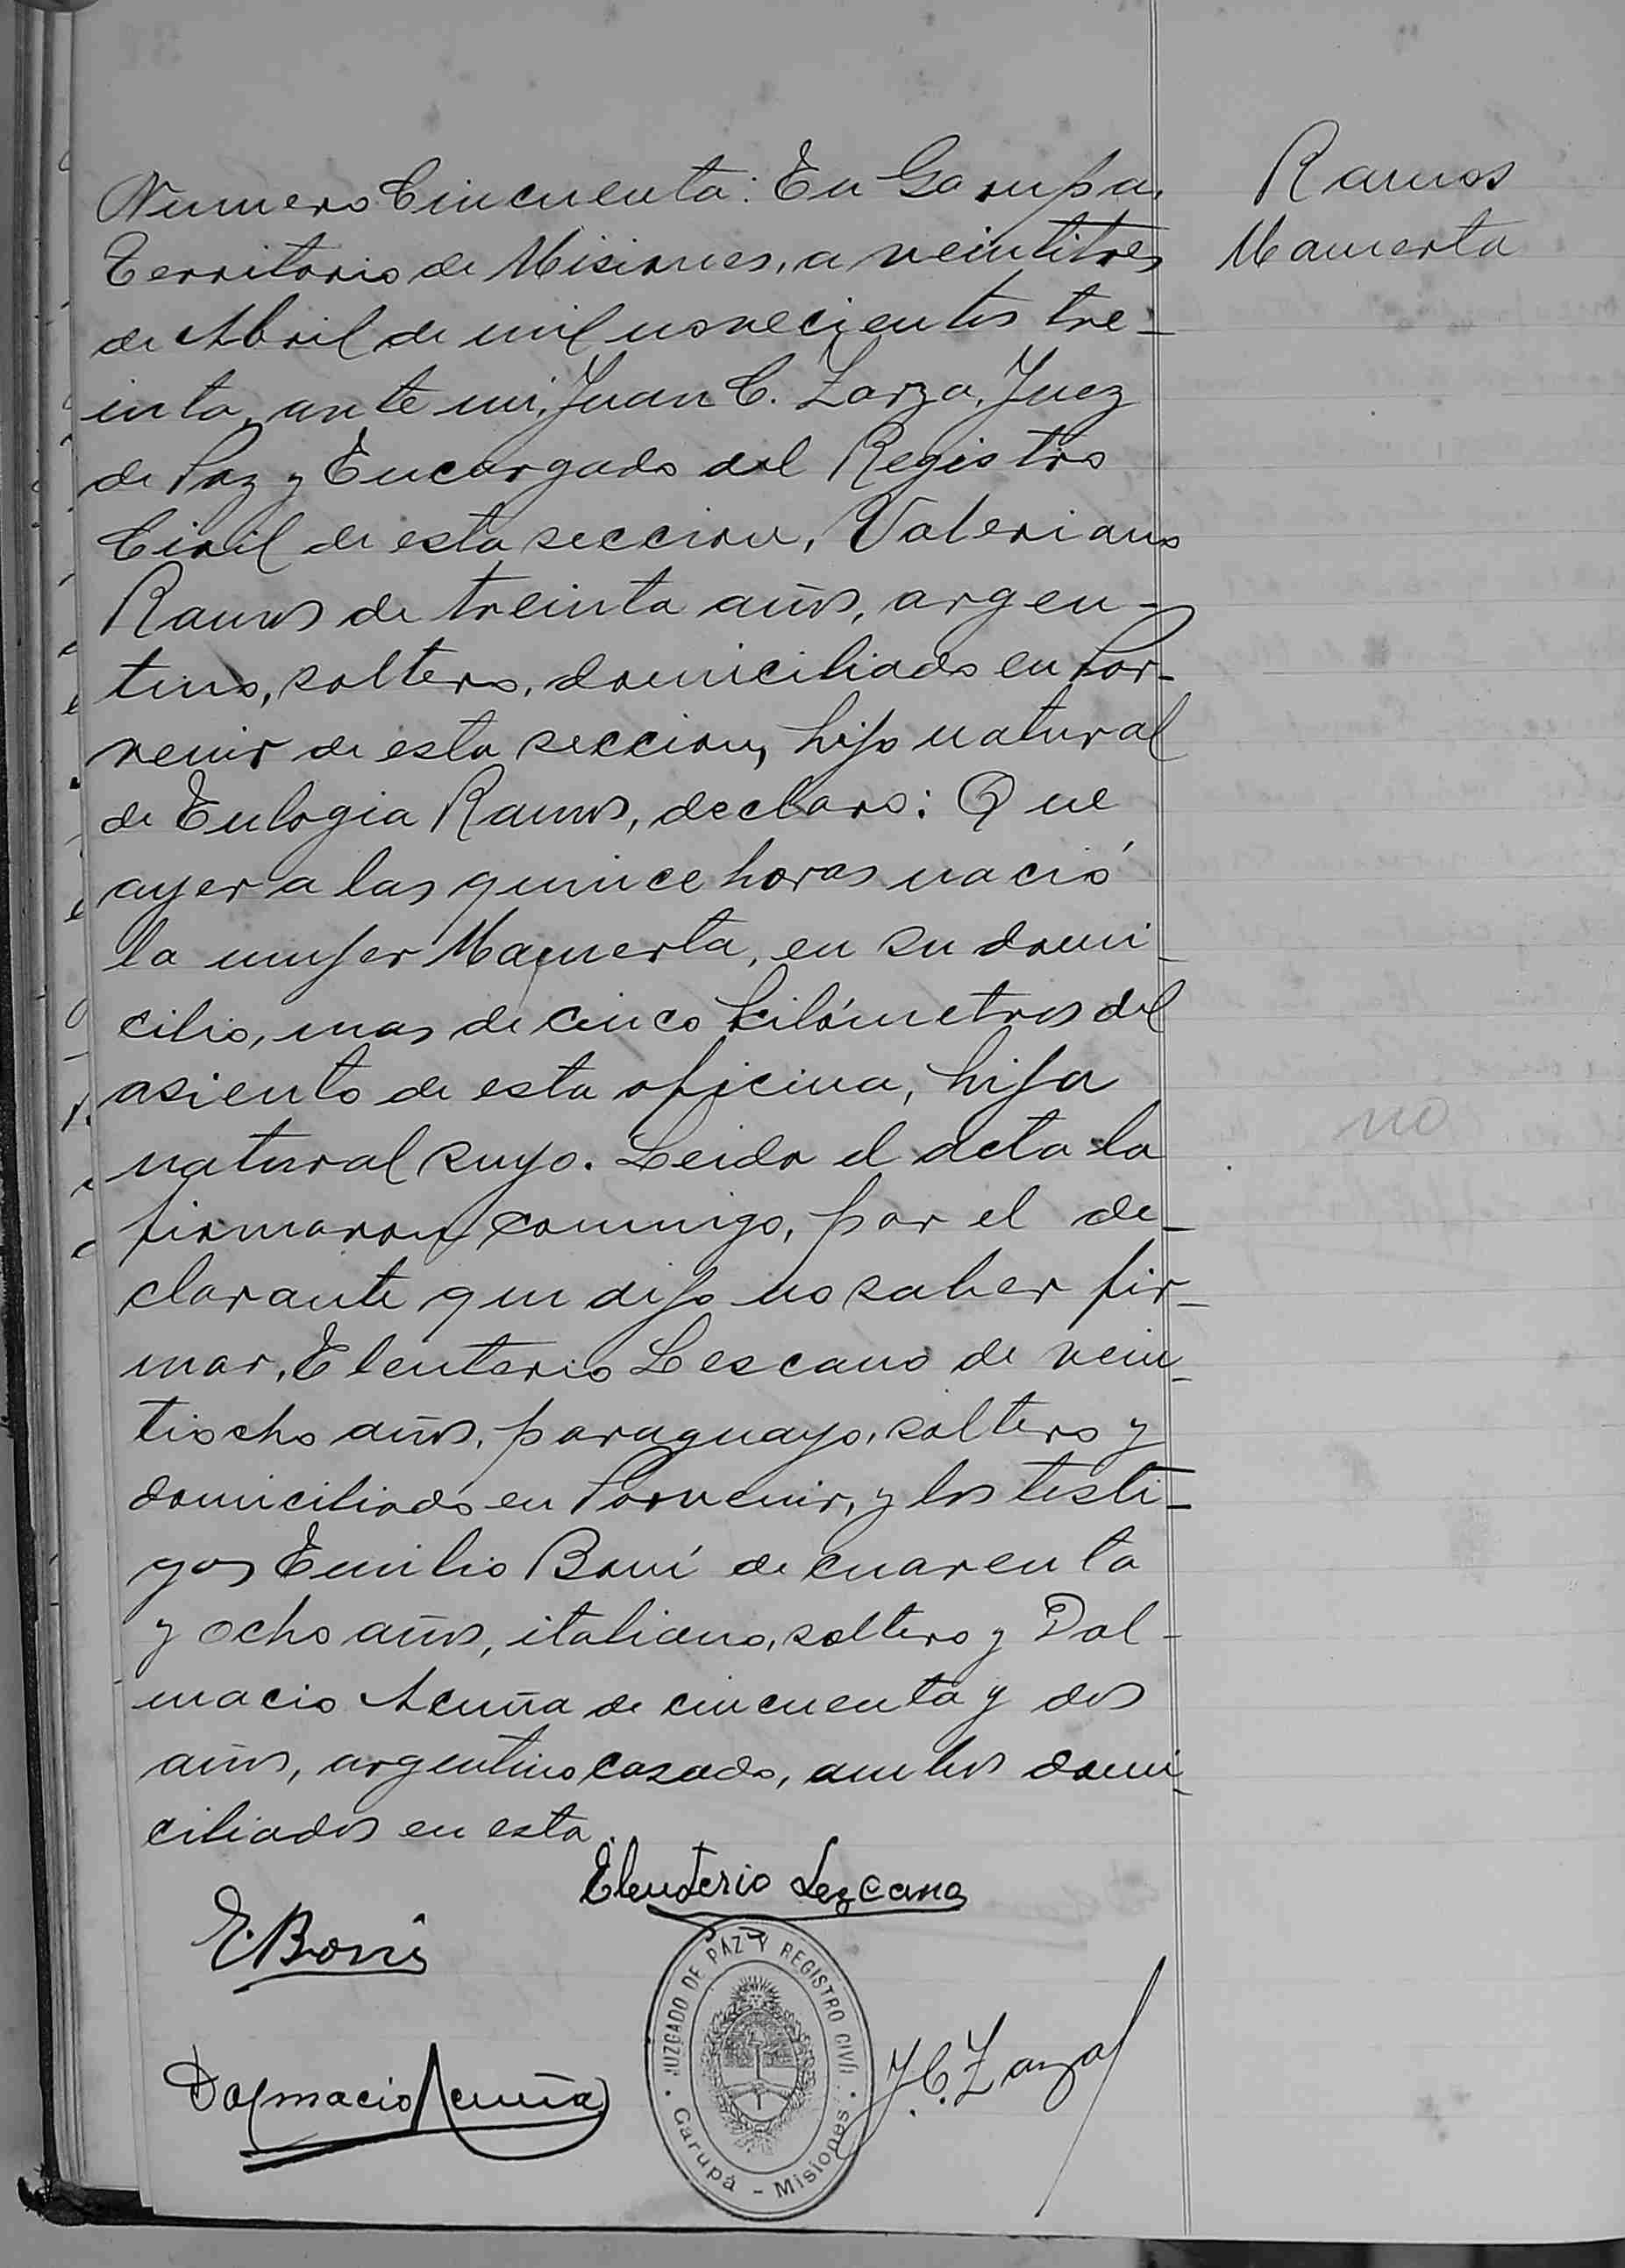 Ramos
Mamerta
Numero Cincuenta: En Garupa,
Territorio de Misiones, a veintitres
de Abril de mil novecientos tre-
inta, ante mi, Juan C. Zarza, Juez
de Paz y Encargado del Registro
Civil de esta seccion, Valeriano
Ramos de treinta años, argen-
tino, soltero, domiciliado en Por-
venir de esta seccion, hijo natural
de Eulogia Ramos, declaro: Que
ayer a las quince horas nació
la mujer Mamerta, en su domi-
cilio, mas de cinco kilómetros del
asiento de esta oficina, hija
natural suyo. Leida el acta la
firmaron conmigo, por el de-
clarante que dijo no saber fir-
mar, Eleuterio Lescano de vein-
tiocho años, paraguayo, soltero y
domiciliado en Porvenir, y los testi-
gos Emilio Boni de cuarenta
y ocho años, italiano, soltero y Dal-
macio Acuña de cincuenta y dos
años, argentino casado, ambos domi-
ciliados en esta.
Eleuterio Lezcano
E. Boni
Dalmacio Acuña
J. C. Zarza
JUZGADO DE PAZ Y REGISTRO CIVIL
Garupá - Misiones
no